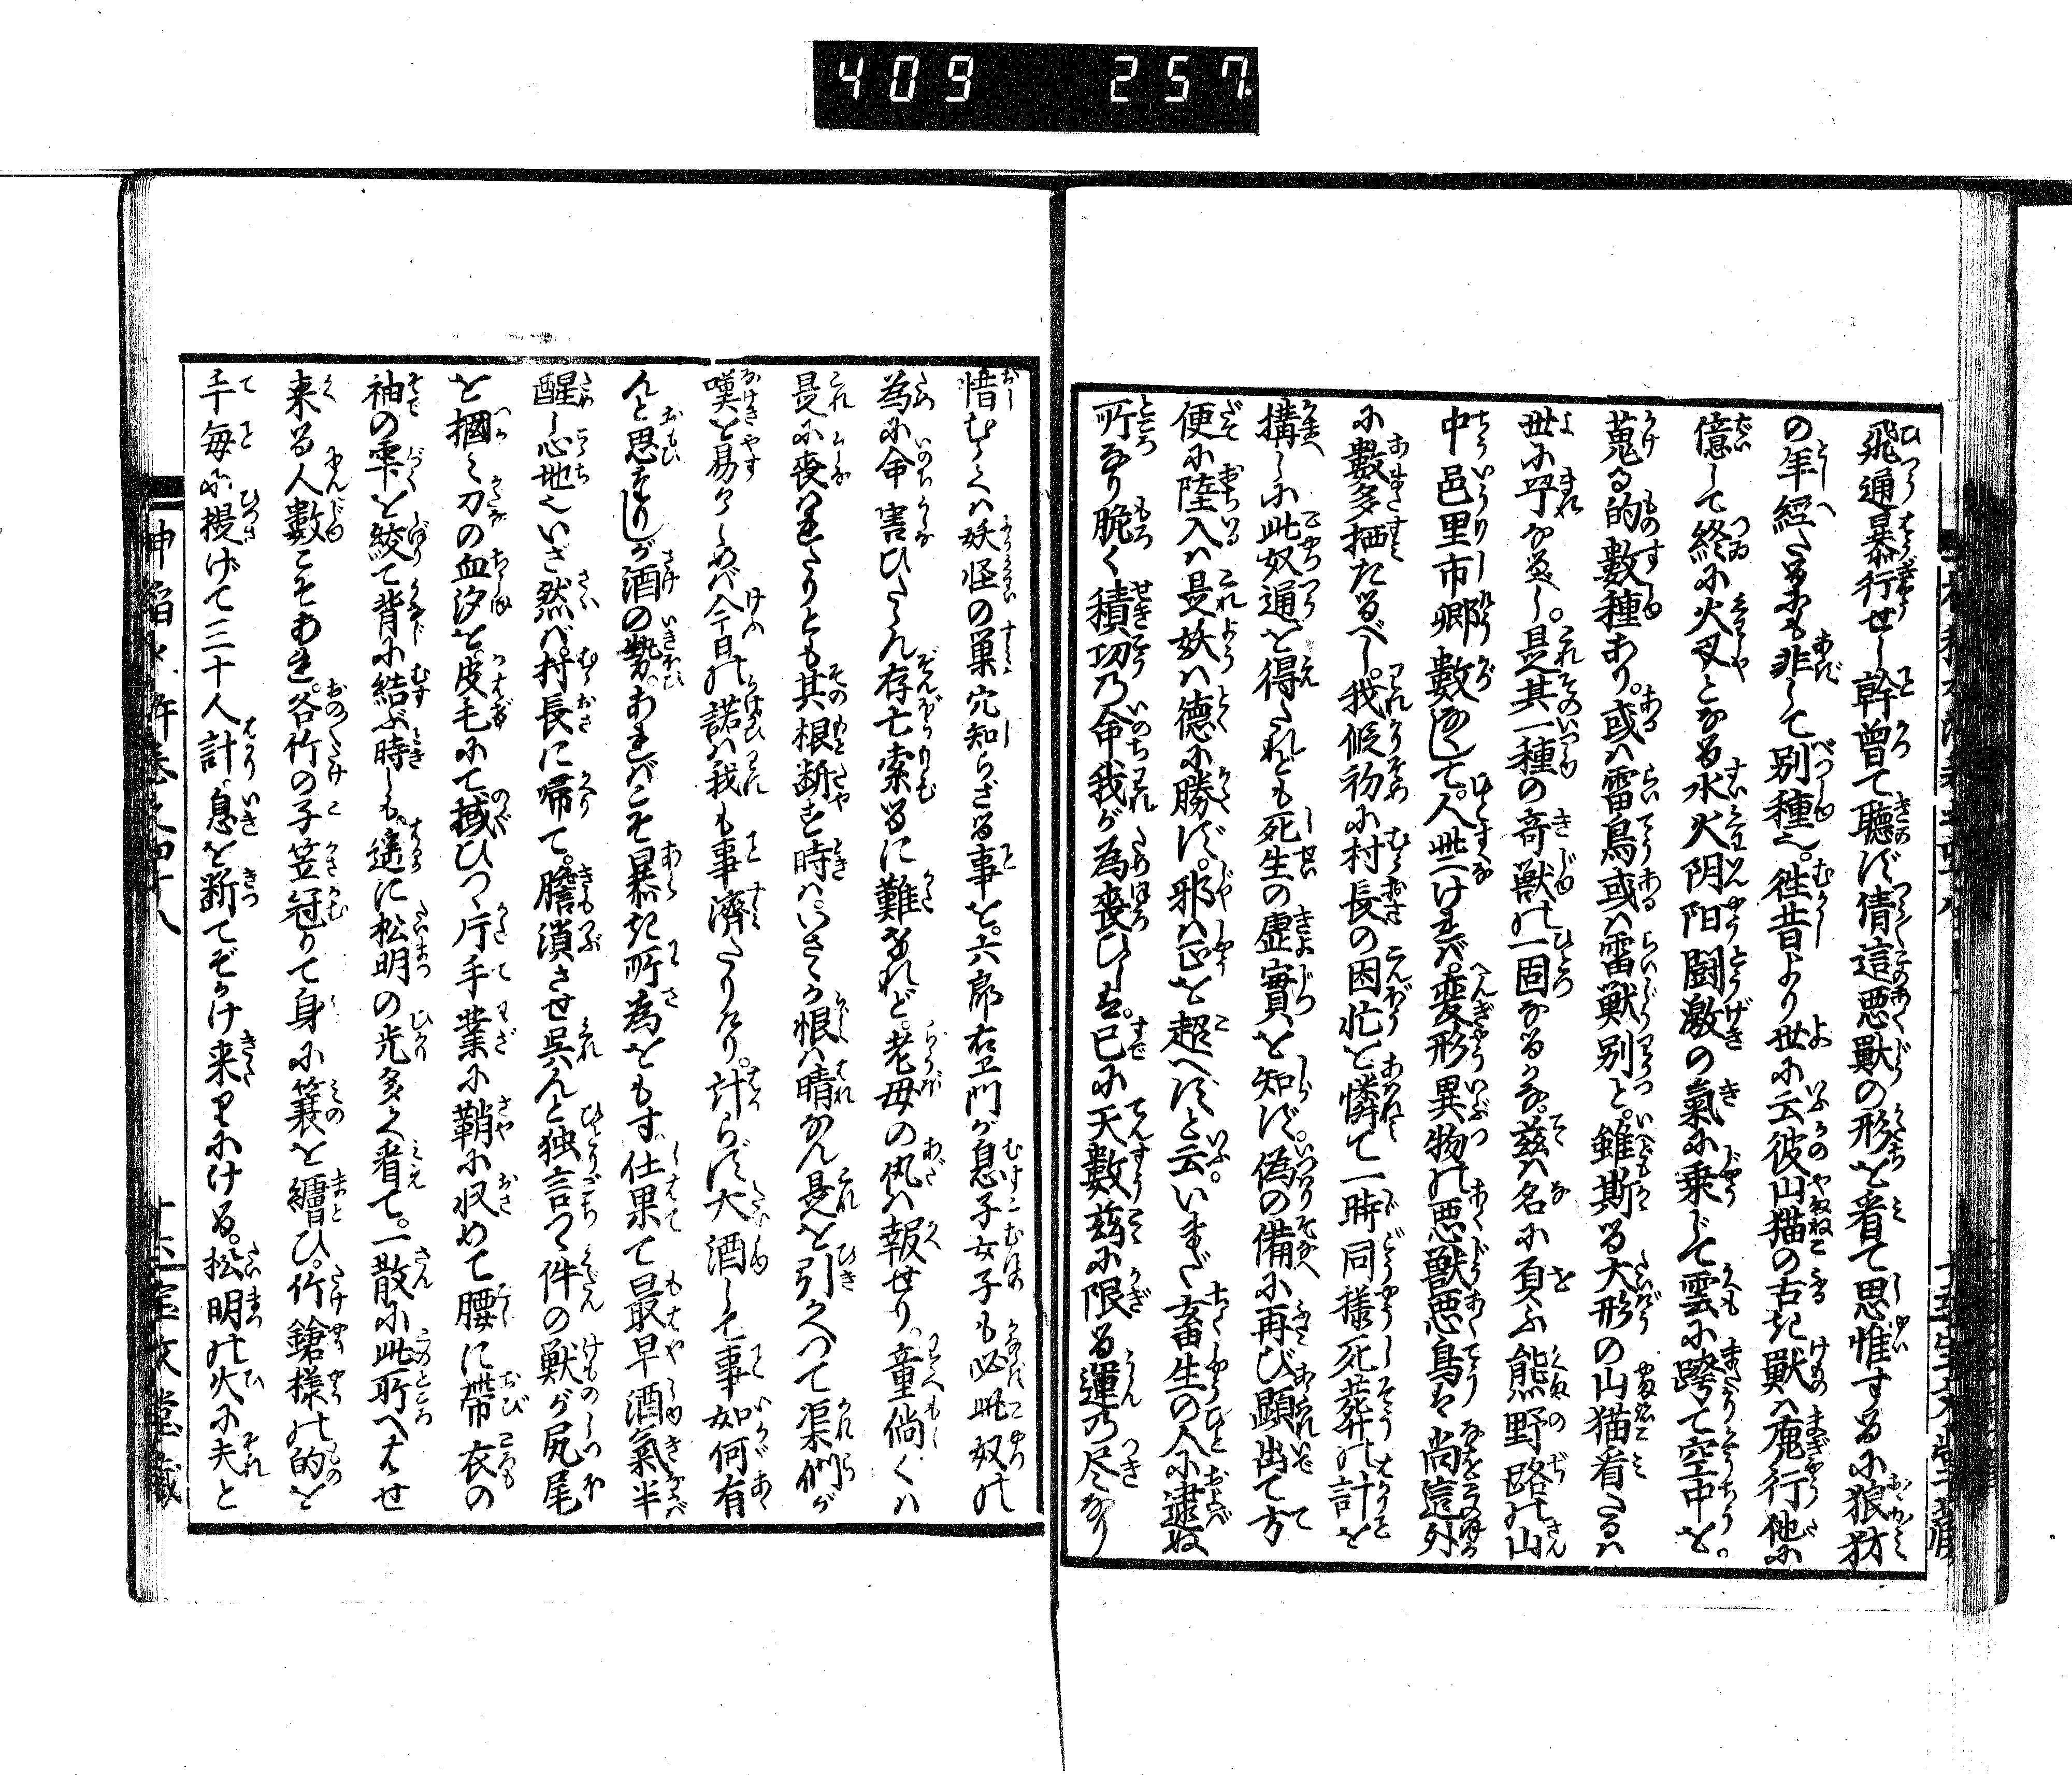 409 257
飛通暴行せし幹曽て聴ず倩這悪獣の形を看て思惟するに狼豺
の年経たるにも非して別種也。往昔より世に云彼山猫の古き獣ハ魔行他に
億して終に火叉となる水火阴阳闘激の氣に乗じて雲に跨て空中を。
蒐る的數種あり。或ハ雷鳥或ハ雷獣别と。雖斯る大形の山猫看たるハ
世に罕なるべし。是其一種の奇獣の一固なるかな。茲ハ名に負ふ熊野路の山
中邑里市郷數なくして。人世なけれバ。変形異物の悪獣悪鳥は尚這外
に數多栖たるべし。我仮初に村長の困忙を憐て一時同様死葬の計を
構しに此奴通を得たれども死生の虚實を知ず。偽の備に再び顕出て方
便に陸入ハ是妖ハ德に勝ず。邪ハ正を超へずと云。いまだ畜生の人に逮ぬ
所なり脆く積功乃命我が為喪ひしハ。已に天數茲に限る運乃尽なり
惜むらくハ妖怪の巣穴知らざる事を。六郎右卫門が息子女子も必此奴の
為に命害ひたらん存亡索るに難なれど。老母の仇ハ報せり。童倘くハ
是に喪はれたりとも其根断を時ハ。いさゝか恨ハ晴なん是を引かへつて渠們が
嘆を易らしめバ今日の諾ハ我も事濟たりけり。計らず大酒して事如何有
んと思ひしが酒の勢。あれバこそ暴き所為をもす。仕果て最早酒氣半
醒し心地也いざ然バ。村長に帰て。膽潰させ呉んと独言つゝ件の獣が尻尾
を摑み刀の血汐を。皮毛にて拭ひつゝ片手業に鞘に収めて腰に帯衣の
袖の雫を絞て背に結ぶ時しも。遥に松明の光多く看て。一散に此所へはせ
来る人數こそあれ。各竹の子笠冠りて身に簑を纏ひ。竹鎗様の的を
手毎に提げて三十人計。息を断てぞかけ来りにける。松明の火に夫と